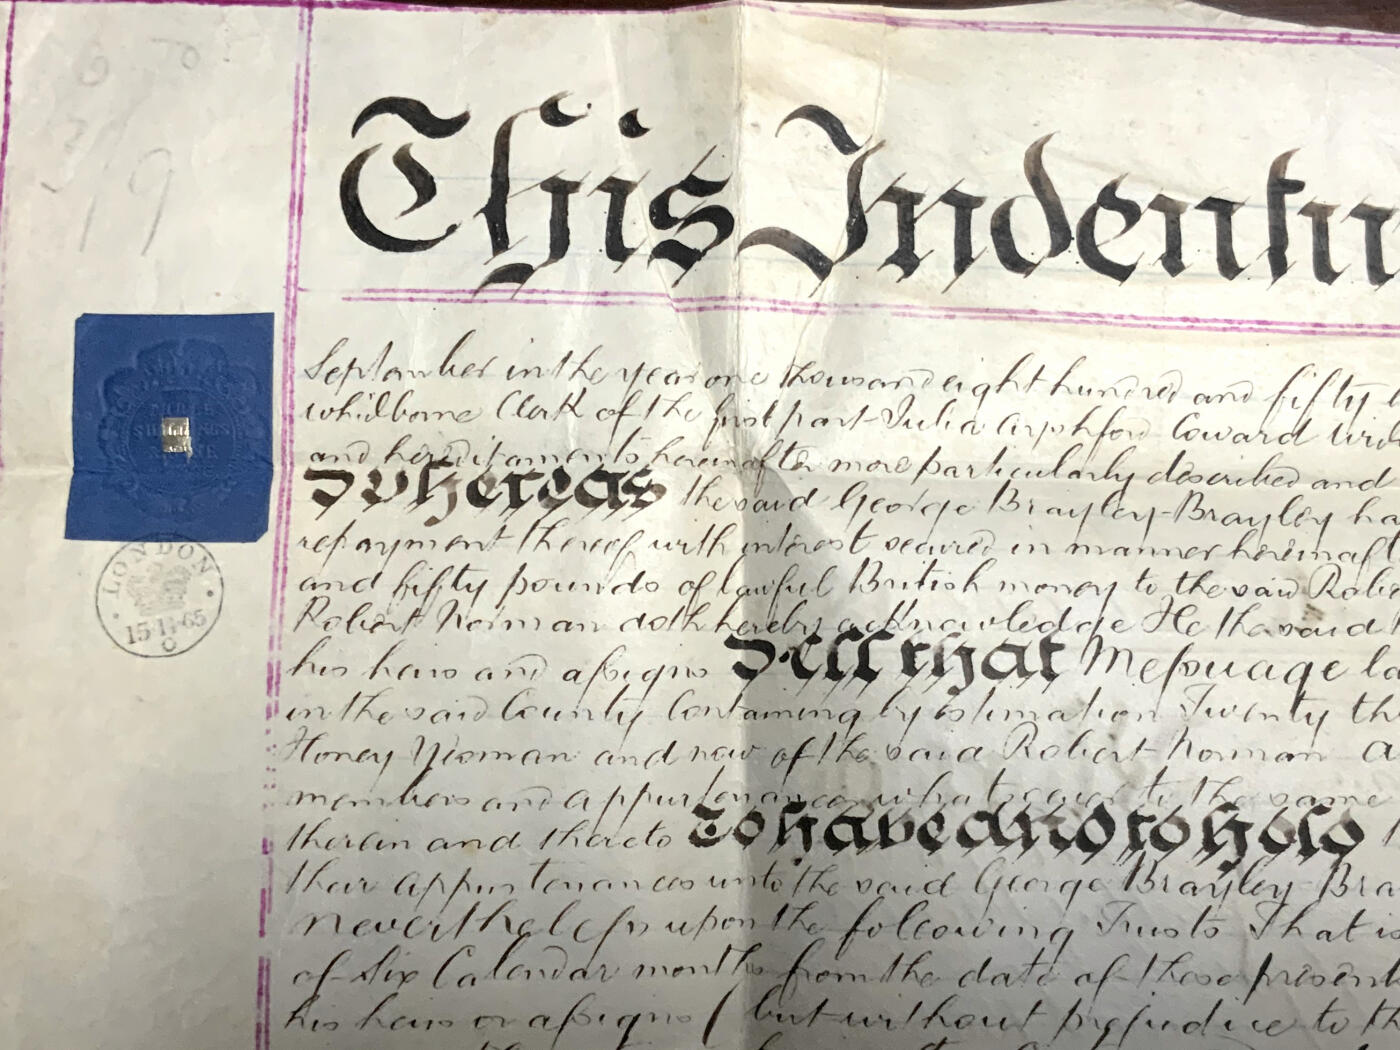 This Indentu
September in the year one thousand eight hundred and fifty
Whidborne Clerk of the first part Julia Coward
and hereditaments hereinafter more particularly described and
Whereas the said George Brayley Brayley ha
repayment thereof with interest secured in manner hereinaft
and fifty pounds of lawful British money to the said Robe
Robert Norman doth hereby acknowledge He the said
his heirs and assigns All that Messuage la
in the said County Containing by estimation Twenty th
Honey Yeoman and now of the said Robert Norman
members and appurtenances whatsoever to the same
therein and thereto To have and to hold
their appurtenances unto the said George Brayley Bra
Nevertheless upon the following Trusts That is
of Six Calendar months from the date of these present
his heirs or assigns (but without prejudice to th
LONDON
15·11·65